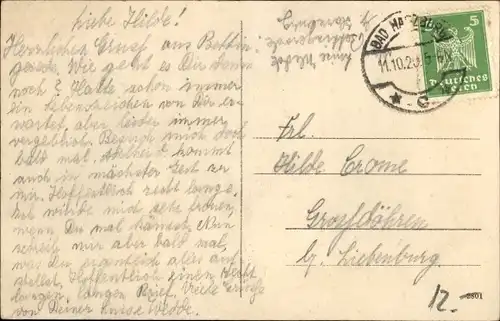 Liebe Hilde!
Herzlichen Gruß aus Bettin-
gerode. Wie geht es Dir denn
noch? Hatte schon immer
ein Lebenszeichen von Dir er-
wartet, aber leider immer
vergeblich. Besuch mich doch
bald mal. kommt
auch in nächster Zeit zu
mir. Hoffentlich recht lange.
Ich würde mich sehr freuen,
wenn Du mal kämest. Nun
schreib mir aber bald mal,
was Du eigentlich alles auf-
stellst. Hoffentlich einen recht
langen, langen Brief. Viele Grüße
von Deiner Luise Wedde.
Luise Wedde
Bettingerode
b/ Harzburg
BAD HARZBURG
11.10.26
* c
5
Deutsches
Reich
Frl.
Hilde Crome
Großdöhren
b/ Liebenburg
12.-
2801